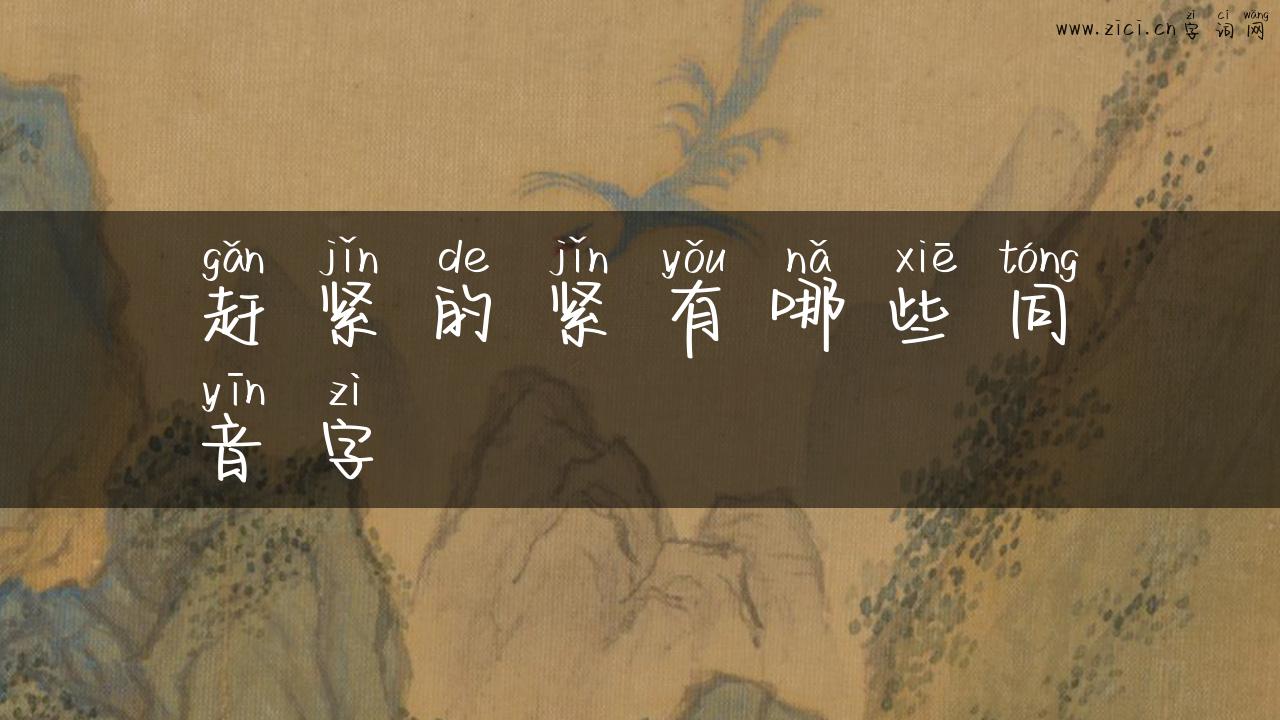 zì cí wǎng
www.zici.cn字词网
gǎn jǐn de jǐn yǒu nǎ xiē tóng
赶紧的紧有哪些同
yīn zì
音字